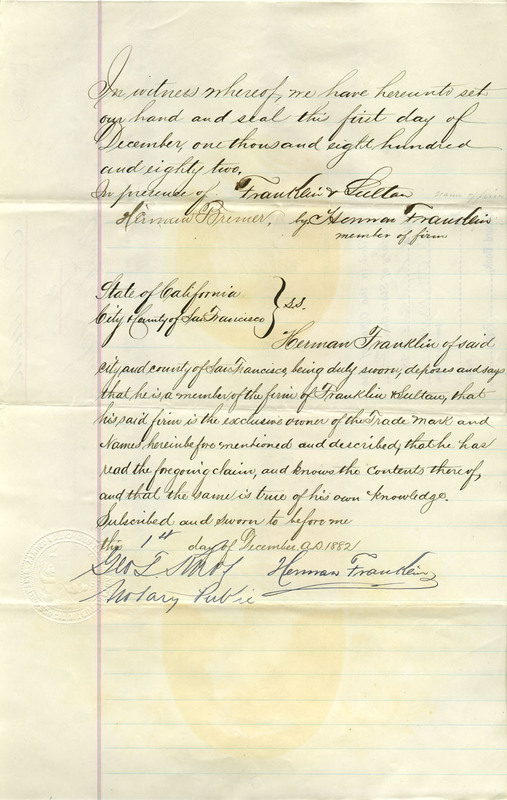 In witness whereof, we have hereunto set
our hand and seal this first day of
December, one thousand eight hundred
and eighty two.
In presence of Franklin & Sultan
Herman Bremer, by Herman Franklin
member of firm
State of California
City & County of San Francisco } S.S.
Herman Franklin of said
city and county of San Francisco, being duly sworn, deposes and says
that he is, a member of the firm of Franklin & Sultan, that
his said firm is the exclusive owner of the Trade Mark and
Names, hereinbefore mentioned and described, that he has
read the foregoing claim, and knows the contents thereof,
and that the same is true of his own knowledge.
Subscribed and sworn to before me
this 1st day of December, A.D. 1882
Geo T. Herman Franklin
Notary Public